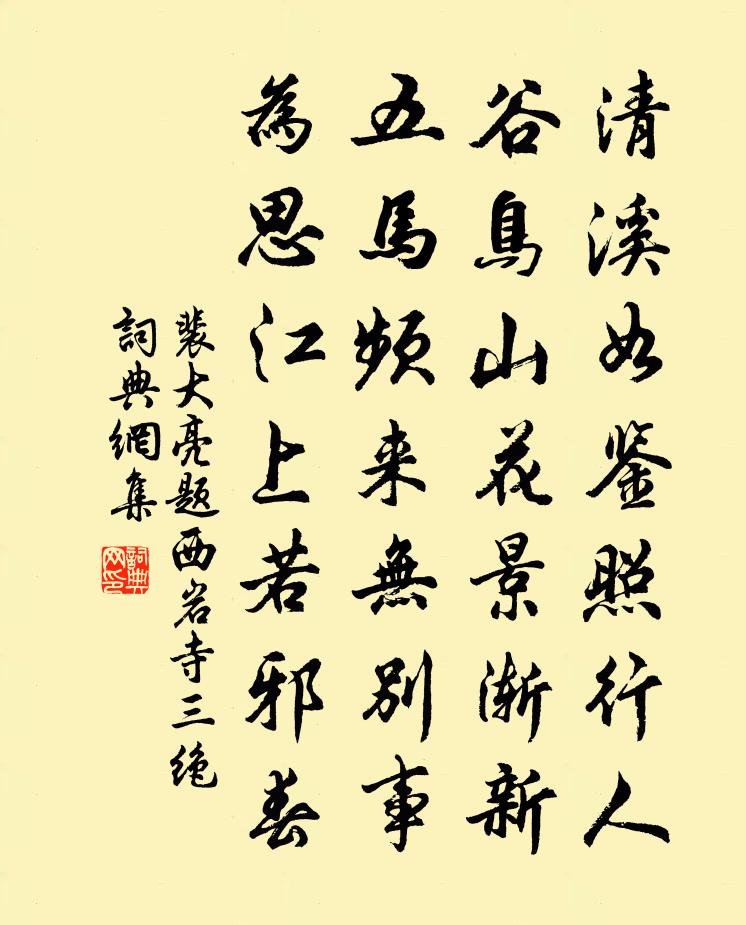 清溪如鉴照行人
谷鳥山花景渐新
五馬频来無别事
為思江上若邪春
裴大亮题西岩寺三绝
詞典網集
詞典网印